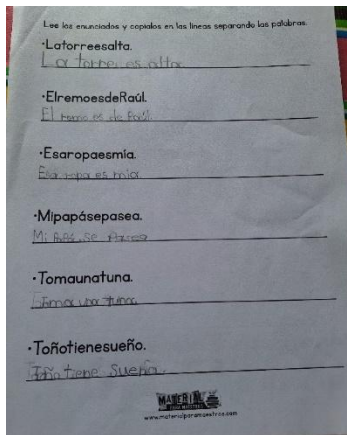 Lee los enunciados y copialos en las líneas separando las palabras.
•Latorreesalta.
La torre es alta.
•ElremoesdeRaúl.
El remo es de Raúl.
•Esaropaesmía.
Esa ropa es mía.
•Mipapásepasea.
Mi papá se pasea
•Tomaunatuna.
Toma una tuna.
•Toñotienesueño.
Toño tiene sueño.
MATERIAL
PARA MAESTROS
www.materialparamaestros.com